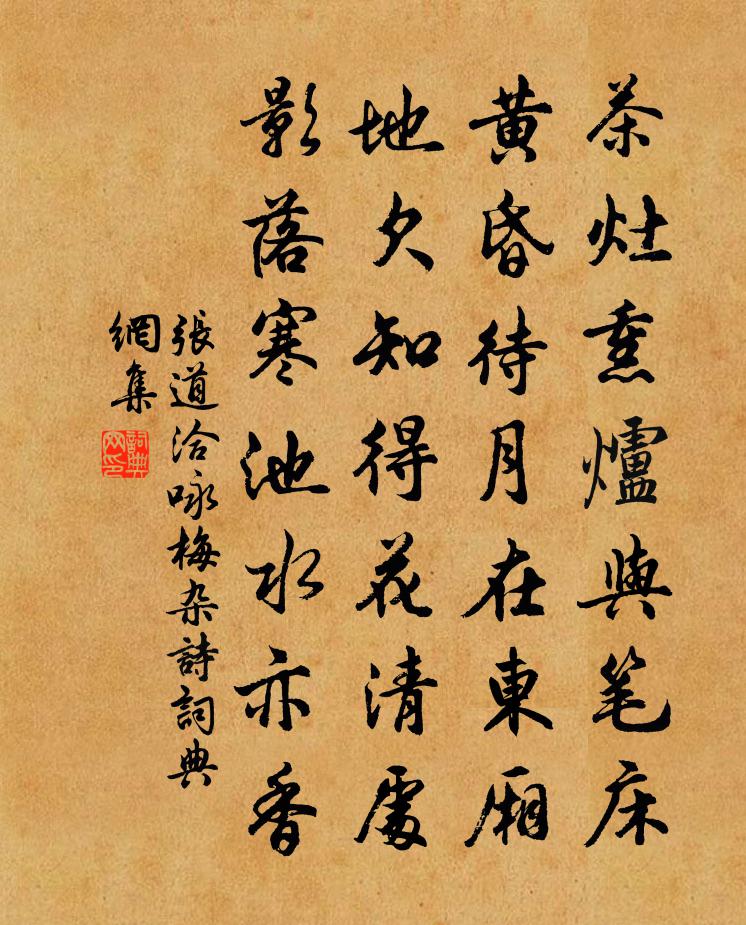 茶灶熏爐與笔床
黄昏待月在東厢
地久知得花清處
影落寒池水亦香
張道洽咏梅杂詩詞典
網集
詞典
网印